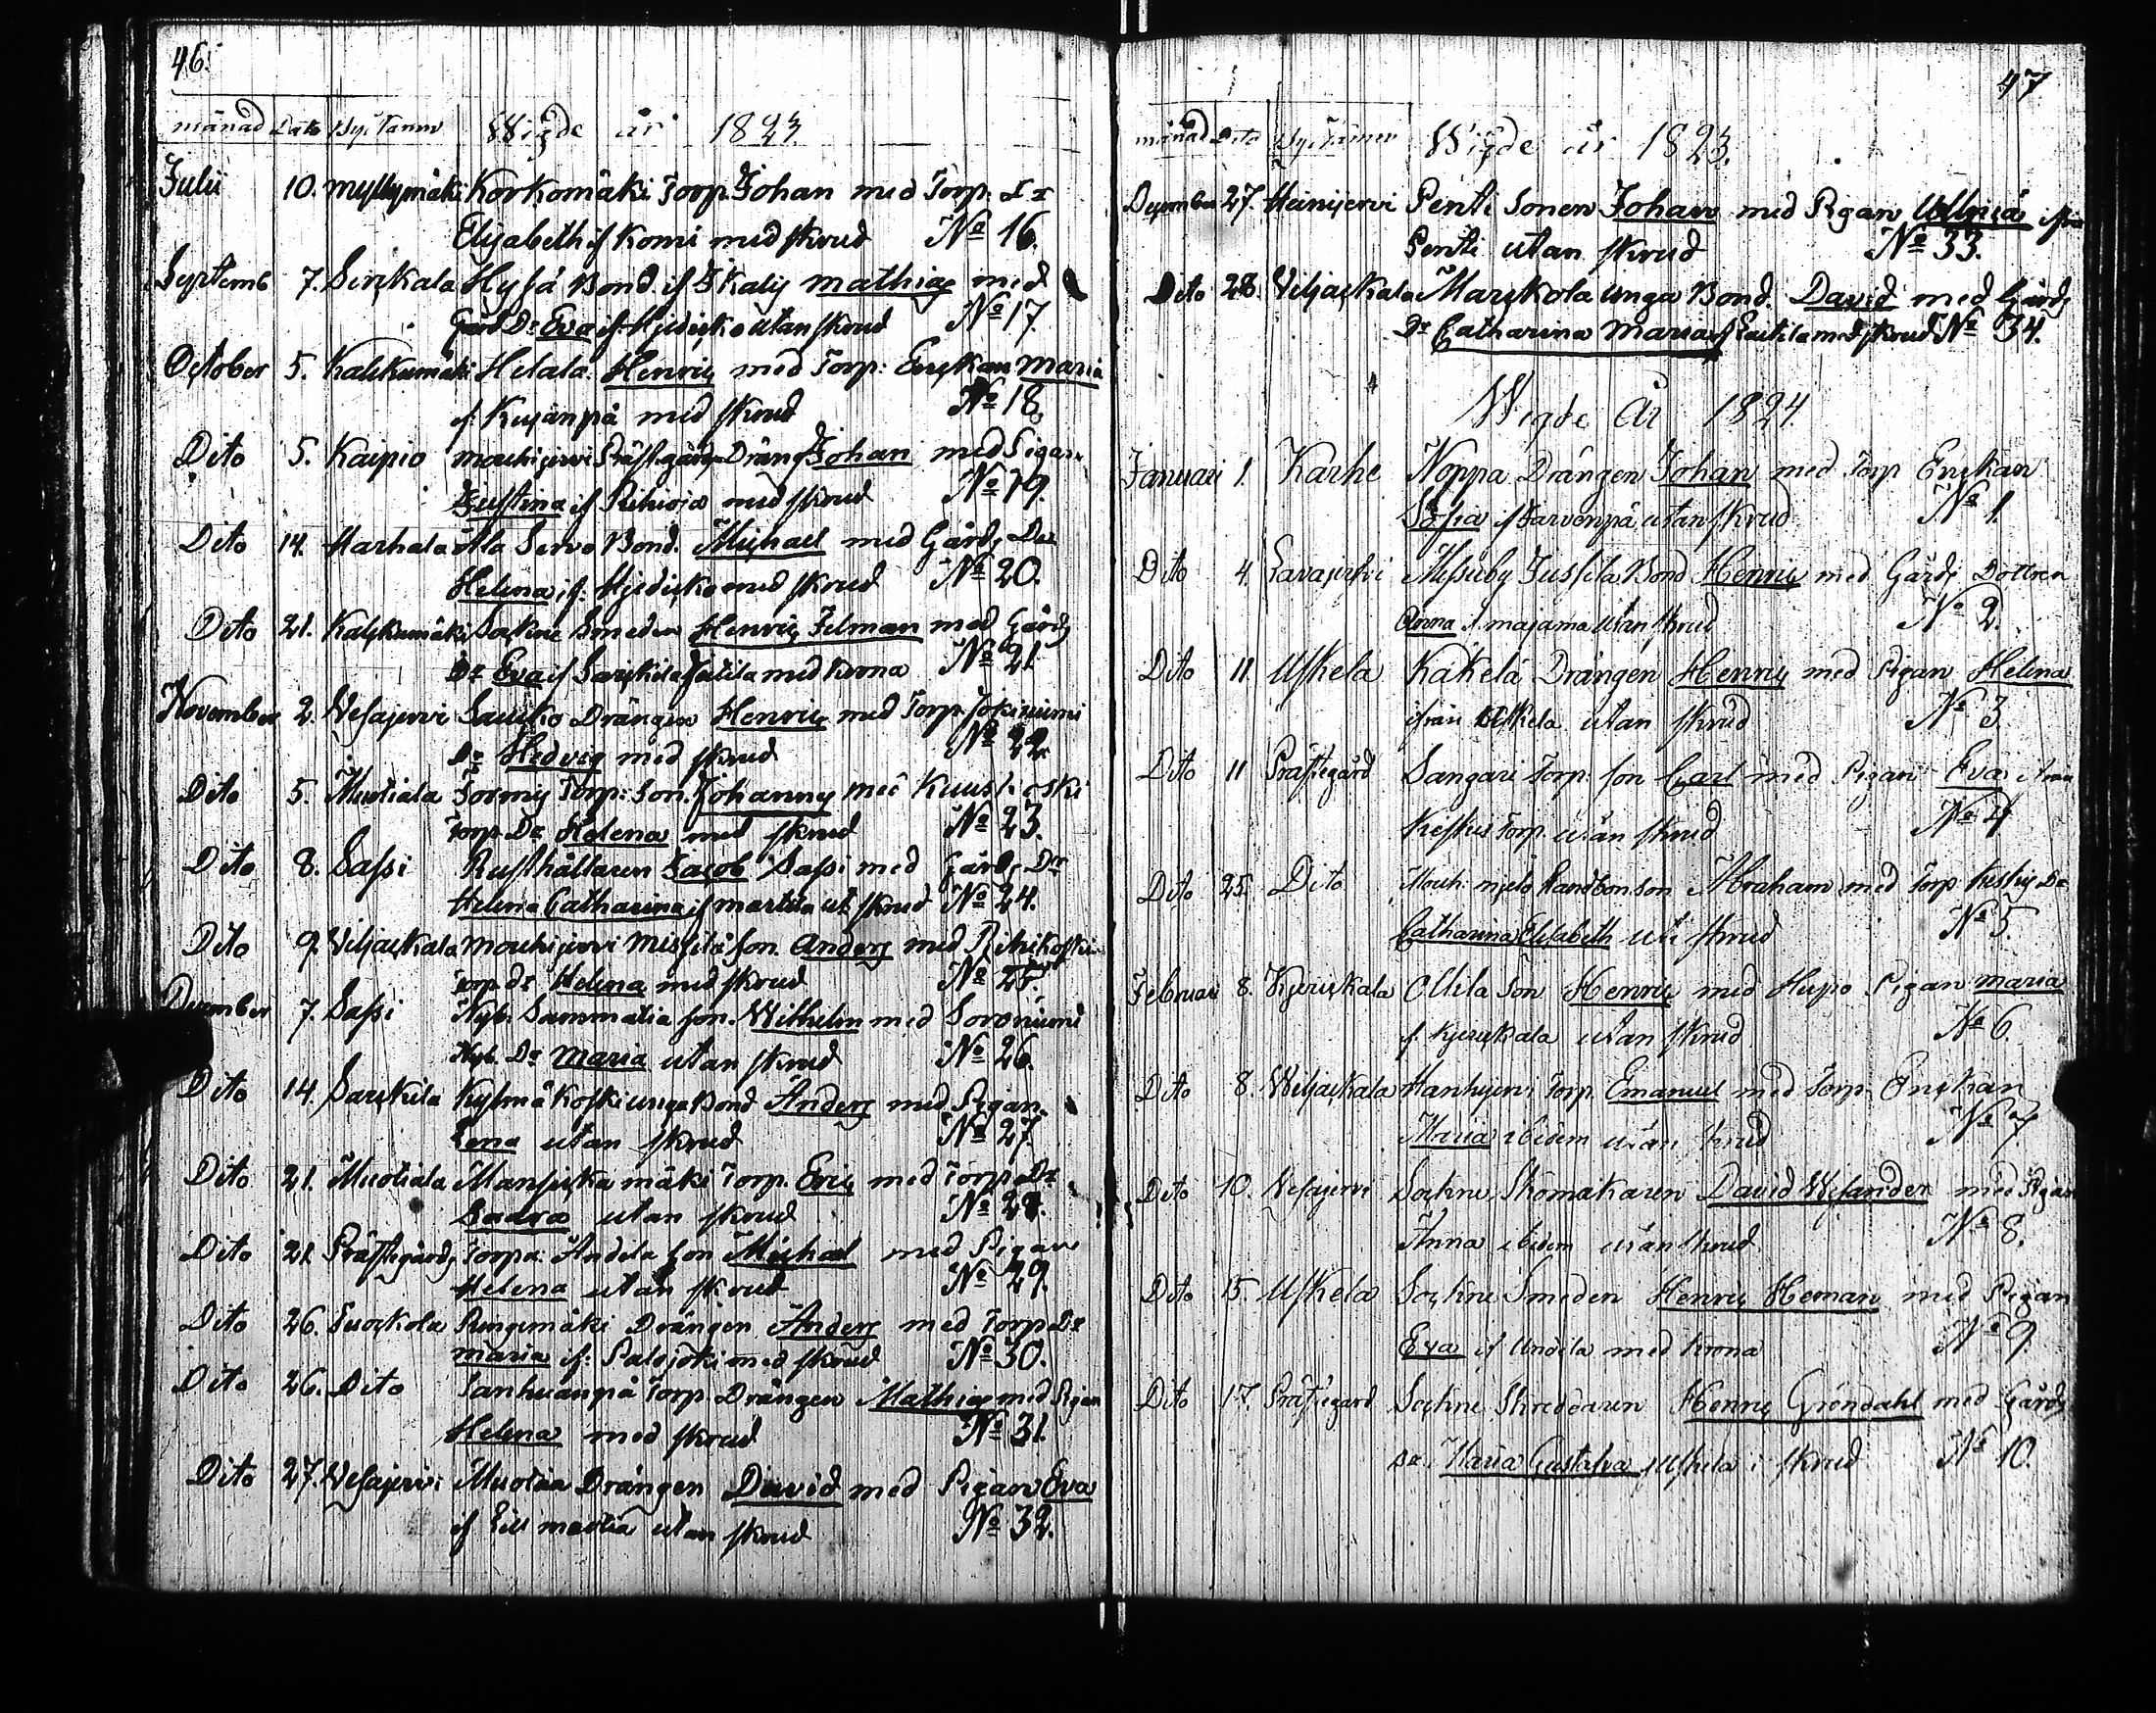 46.
månad Dato Byetamn Wigde år 1823.
Julii 10. Myllymäki Korkomäki Torp. Johan med Torp. Dr
Elisabeth if Komi med skrud No 16.
Septemb 7. Sirkala Hyßä Bond. if Ikalis Mathias med
Gård Dr Eva if Hjedicko utan skrud No 17
October 5. Kalkumäki Helala Henric med Torp: Enckan Maria
if. Kujänpä med skrud No 18.
Dito 5. Kaipio Mouhijervi Prästgårds Dräng Johan med Pigan
Justina if Rihioja med skrud No 19.
Dito 14. Harhala Ala Servo Bond. Michael med Gårds Dr
Helena if: Hjedicko med skrud No 20.
Dito 21. Kalckumäki Sockne Smeden Henric Felman med Gårds
Dr Eva if Sarckila Jutila med krona No 21.
November 2. Wesajervi Saucko Drängen Henric med Torp. Jokiniemi
Dr Hedvig med skrud No 22.
Dito 5. Muotiala Tormis Torp: Son. Johannes med Kuuskoski
Torp. Dr Helena med skrud No 23.
Dito 8. Saßi Rusthållaren Jacob Saßi med Gårds Dr
Helena Catharina if Martila ut. skrud No 24.
Dito 9. Viljackala Mouhijervi Mißilä son. Anders med Rihikoski
Torp. Dr Helena med skrud No 25.
December 7. Saßi Nyb. Sammatia son. Wilhelm med Soroniemi
Nyb. Dr Maria utan skrud No 26.
Dito 14. Sarckila Kylmäkoski unga Bond Anders med Pigan
Lena utan skrud No 27.
Dito 21. Muotiala Mansicka mäki Torp. Eric med Torp. Dr
Saara utan skrud No 28.
Dito 21 Prästegårds Torpa Andela son Michael med Pigan
Helena utan skrud No 29.
Dito 26. Tuorkola Pengimäki Drängen Anders med Torp. Dr
Maria if: Palojoki med skrud No 30.
Dito 26. Dito Tanhuanpä Torp. Drängen Mathias med Pigan
Helena med skrud No 31.
Dito 27. Wesajervi Muotiaa Drängen David med Pigan Eva
if Lill martila utan skrud No 32.
47
månad Dato Byetamn Wigde år 1823.
December 27. Heinijervi Penti Sonen Johan med Pigan Ulrica ifrån
Penti utan skrud No 33.
Dito 28. Viljackala Marckola unga Bond. David med Gårds
Dr Catharina Maria if Lautila med skrud No 34.
Wigde År 1824.
Januari 1. Karhe Noppa Drängen Johan med Torp Enckan
Sofia if Jarvenpä utan skrud No 1.
Dito 4. Lavajervi Mißuby Jussila Bond Henric med Gårds Dottren
Anna if Majama utan skrud No 2.
Dito 11. Uskela Käkelä Drängen Henric med Pigan Helena
ifrån Uskela utan skrud No 3.
Dito 11 Prästegård Sangari Torp. son Carl med Pigan Eva ifrån
Keskis Torp. utan skrud No 4
Dito 25. Dito Abraham med Torp. Dr
Catharina Elisabeth uti skrud No 5.
Februari 8. Kjerickala Ollila Son Henric med Hupo Pigan Maria
if. Kjerickala utan skrud No 6.
Dito 8. Wiljackala Hanhijervi Torp. Emanuel med Torp. Enckan
Maria ibidem utan skrud No 7.
Dito 10. Wesajervi Sockne Skomakaren David Wesander med Pigan
Anna ibidem utan skrud No 8.
Dito 15. Uskela Sockne Smeden Henric Heman med Pigan
Eva if Undila med krona No 9
Dito 17. Prästegård Sockne Skreddaren Henric Gröndahl med Gårds
Dr. Maria Gustafva if Uskela i skrud No 10.